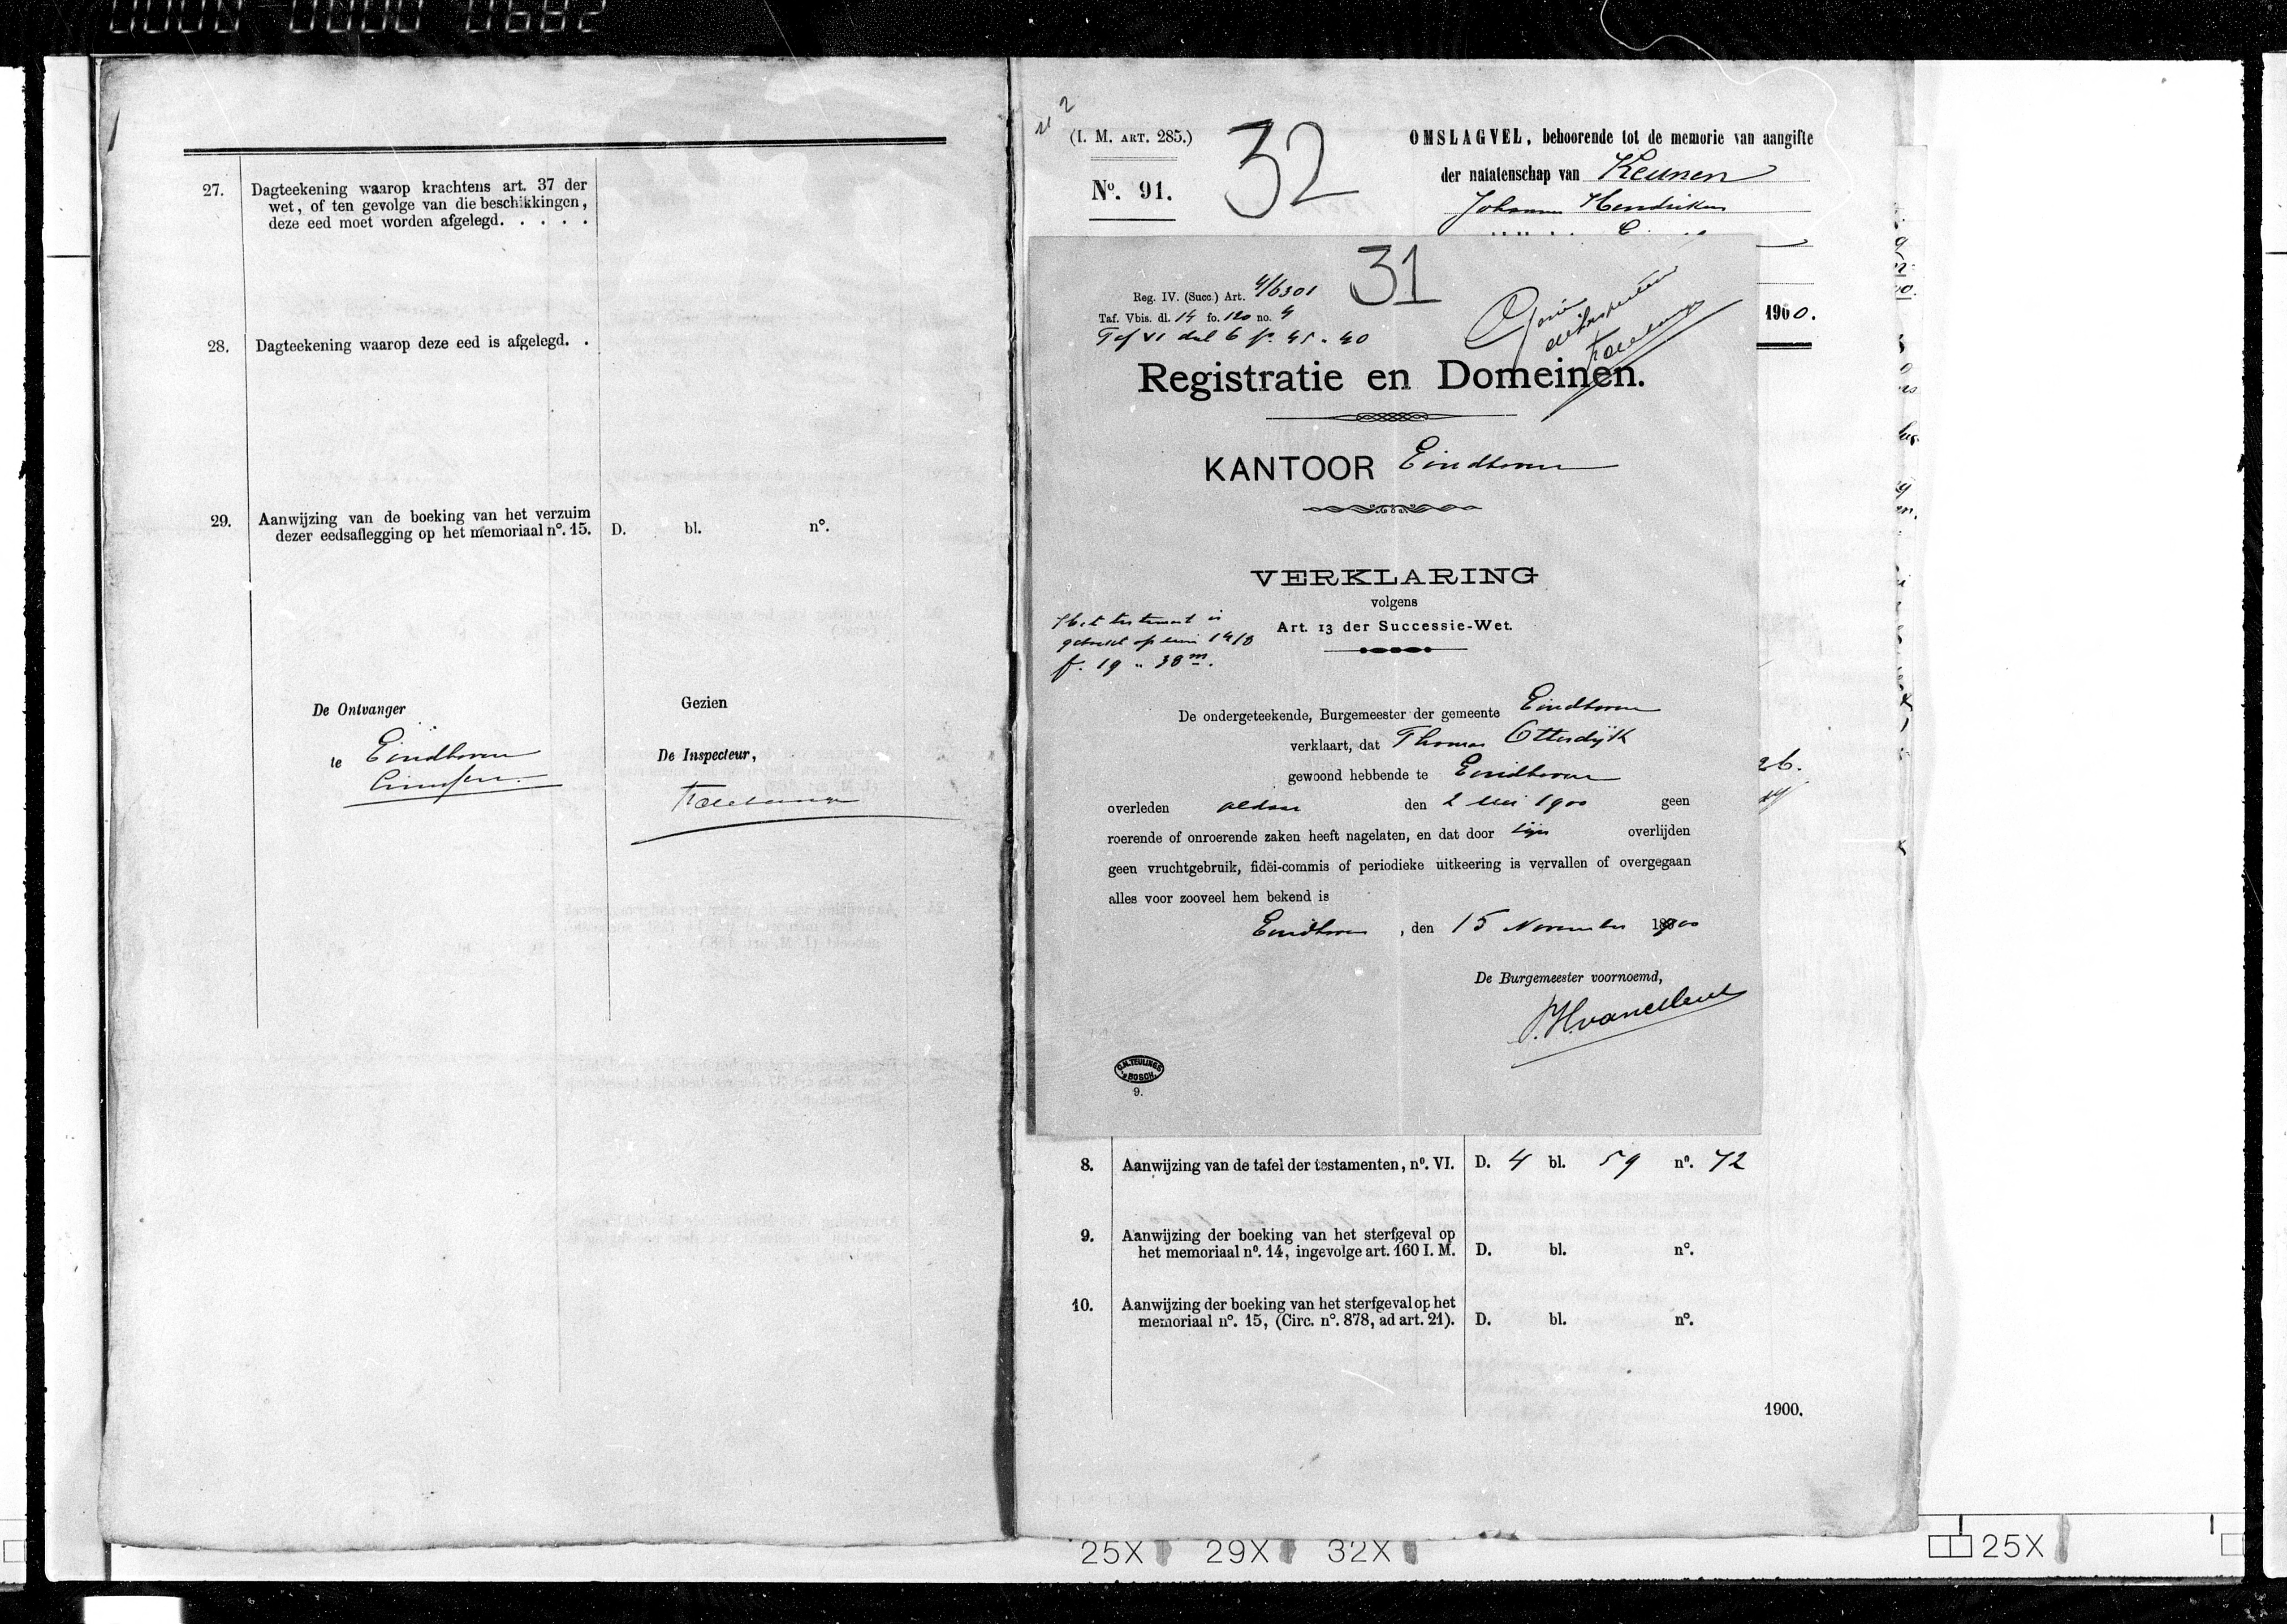 0000 0000 0682
27. Dagteekening waarop krachtens art. 37 der
wet, of ten gevolge van die beschikkingen,
deze eed moet worden afgelegd. . . . .
28. Dagteekening waarop deze eed is afgelegd. .
29. Aanwijzing van de boeking van het verzuim
dezer eedsaflegging op het memoriaal nº. 15. D. bl. nº.
De Ontvanger
te Eindhoven
Gezien
De Inspecteur,
(I. M. ART. 285.)
Nº. 91.
32
OMSLAGVEL, behoorende tot de memorie van aangifte
der nalatenschap van Keunen
Johannes Hendrikus
1900.
31
Reg. IV. (Succ.) Art. 4/6301
Taf. Vbis. dl. 14 fo. 120 no. 4
Taf VI deel 6 fº. 45 n. 40
Registratie en Domeinen.
KANTOOR Eindhoven
VERKLARING
volgens
Art. 13 der Successie-Wet.
Het testament is
f. 19 n. 38
De ondergeteekende, Burgemeester der gemeente Eindhoven
verklaart, dat Thomas Otterdijk
gewoond hebbende te Eindhoven
overleden aldaar den 2 Mei 1900 geen
roerende of onroerende zaken heeft nagelaten, en dat door zijn overlijden
geen vruchtgebruik, fidëi-commis of periodieke uitkeering is vervallen of overgegaan
alles voor zooveel hem bekend is
Eindhoven, den 15 November 1900
De Burgemeester voornoemd,
C.N. TEULINGS
'S BOSCH.
9.
8. Aanwijzing van de tafel der testamenten, nº. VI. D. 4 bl. 59 nº. 72
9. Aanwijzing der boeking van het sterfgeval op
het memoriaal nº. 14, ingevolge art. 160 I. M. D. bl. nº.
10. Aanwijzing der boeking van het sterfgeval op het
memoriaal nº. 15, (Circ. nº. 878, ad art. 21). D. bl. nº.
1900.
25X 29X 32X
25X